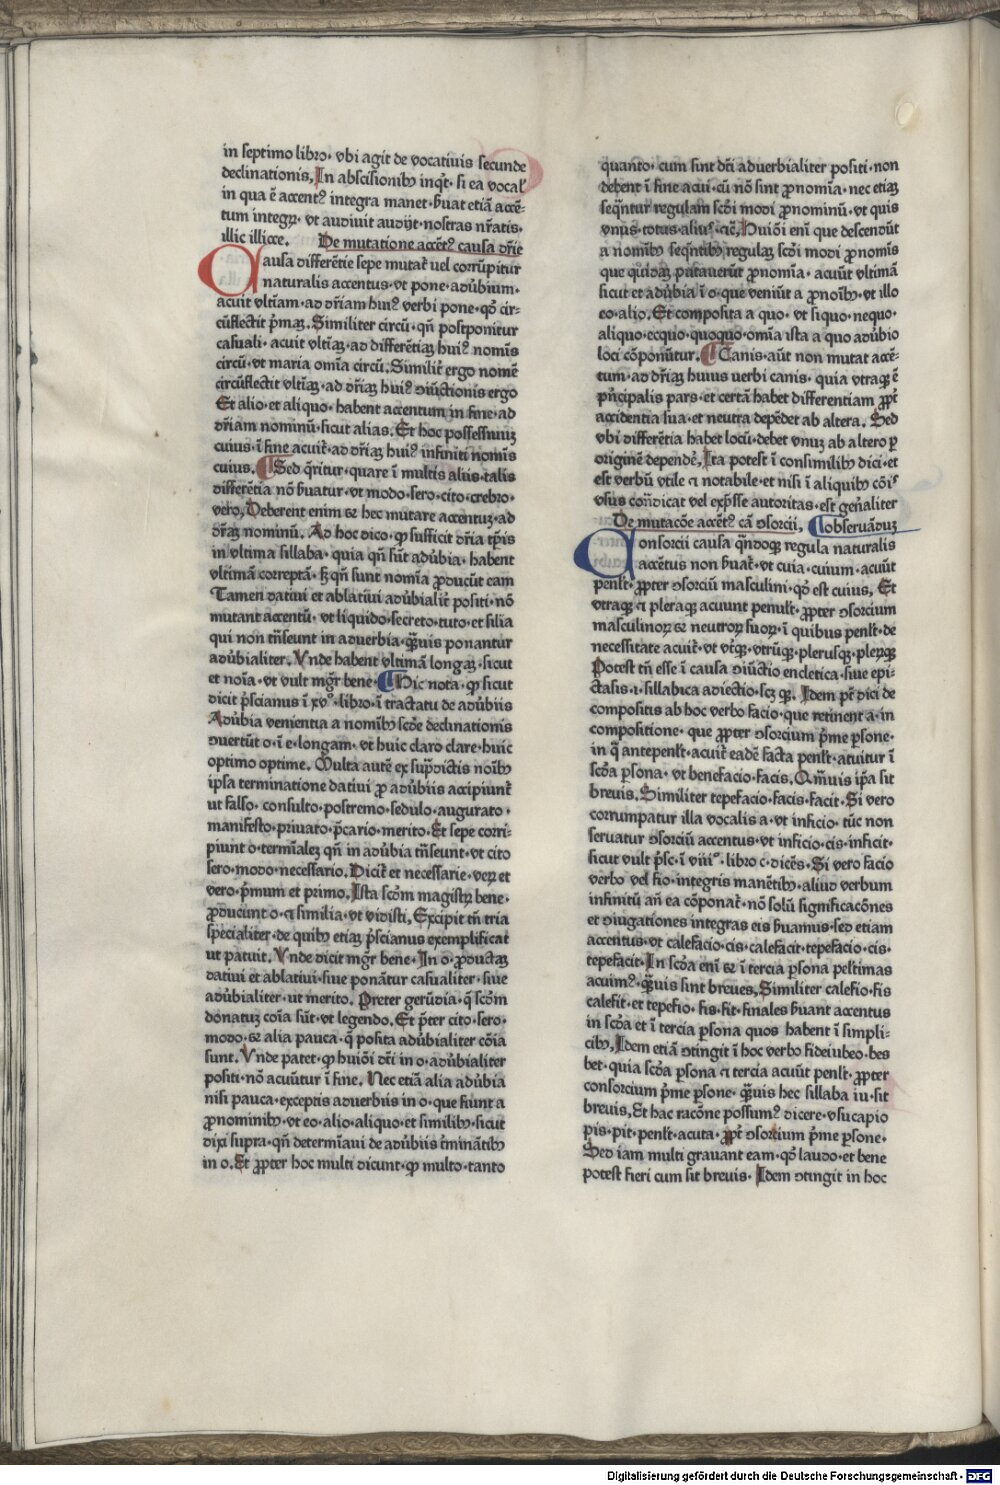 in septimo libro· vbi agit de vocatiuis secunde
declinationis, In abscisionibꝫ inqt̄· si ea vocal'
in qua ē accentꝰ integra manet· ẜuat etiā accē-
tum integrꝝ· vt audiuit audijt· nostras nr̄atis·
illic illicce. De mutatione accētꝰ causa dr̄ie
Causa differētie sepe mutat̉ uel corrūpitur
naturalis accentus· vt pone· adūbium·
acuit vltīam· ad dr̄iam huiꝰ verbi pone· qd̉ cir-
cūflectit pͥmaꝫ. Similiter circū· qn̄ postponitur
casuali· acuit vltīaꝫ· ad differētiaꝫ huiꝰ nomīs
circū· vt maria omīa circū. Similit̉ ergo nomē
circūflectit vltīaꝫ· ad dr̄iaꝫ huiꝰ ↄiūctionis ergo
Et alio· et aliquo· habent accentum in fine· ad
dr̄iam nominū· sicut alias. Et hoc possessiuuꝫ
cuius· ī fine acuit̉· ad dr̄iaꝫ huiꝰ infiniti nomīs
cuius. ¶Sed q̄ritur· quare ī multis aliis· talis
differētia nō ẜuatur· vt modo· sero· cito· crebro·
vero, Deberent enim ⁊ hec mutare accentuꝫ· ad
dr̄iaꝫ nominū. Ad hoc dico· ꝙ sufficit dr̄ia tp̄is
in vltima sillaba· quia qn̄ sūt adūbia· habent
vltimā correptā· ẜꝫ qn̄ sunt nomīa ꝓducūt eam
Tamen datiui et ablatiui adūbialit̉ positi· nō
mutant accentū· vt liquido· secreto· tuto· et silia
qui non tn̄seunt in aduerbia· qꝫuis ponantur
adūbialiter. Vnde habent vltimā longaꝫ· sicut
et noīa· vt vult mgr̄ bene· ¶Hic nota· ꝙ sicut
dicit pͥscianus ī xvº· libro· ī tractatu de adūbiis
Adūbia venientia a nomībꝫ scd̄e declinationis
ↄuertūt o· ī e· longam· vt huic claro clare· huic
optimo optime. Multa autē ex supͣdictis noībꝫ
ipsa terminatione datiui ꝓ adūbiis accipiunt̉
ut falso· consulto· postremo· sedulo· augurato·
manifesto· priuato· pͥcario· merito· Et sepe corri-
piunt o· termīaleꝫ qn̄ in adūbia tn̄seunt· vt cito
sero· modo· necessario. Dicit̉ et necessarie· veꝝ et
vero· pͥmum et primo. Ista scd̄m magistꝝ bene·
ꝓducunt o· ⁊ similia· vt vidisti, Excipit tn̄ tria
specialiter· de quibꝫ etiaꝫ pͥscianus exemplificat
ut patuit. Vnde dicit mgr̄ bene· In o· ꝓductaꝫ
datiui et ablatiui· siue ponātur casualiter· siue
adūbialiter· ut merito. Preter gerūdia· q̄ scd̄m
donatuꝫ coīa sūt· vt legendo. Et pͥter cito· sero·
modo· ⁊ alia pauca· q̄ posita adūbialiter cōīa
sunt. Vnde patet· ꝙ huiōi dc̄i in o· adūbialiter
positi· nō acuūtur ī fine. Nec etiā alia adūbia
nisi pauca· exceptis aduerbiis in o· que fiunt a
ꝓnominibꝫ· vt eo· alio· aliquo· et similibꝫ· sicut
dixi supra· qn̄ determīaui de adūbiis t̉minātibꝫ
in o. Et ꝓpter hoc multi dicunt· ꝙ multo· tanto
quanto· cum sint dc̄i aduerbialiter positi· non
debent ī fine acui· cū nō sint ꝓnomīa· nec etiaꝫ
seqn̄tur regulam scd̄i modi ꝓnominū· vt quis
vnus· totus· aliusꝰ· ⁊c̄, Huiōi enī que descendūt
a nomībꝫ seqn̄tibꝫ regulaꝫ scd̄i modi ꝓnomīs
que quidaꝫ putauerūt ꝓnomīa· acuūt vltimā
sicut et adūbia ī o· que veniūt a ꝓnoībꝫ· vt illo
eo· alio. Et composita a quo· vt siquo· nequo·
aliquo· ecquio· quoquo· omīa ista a quo adūbio
loci cōponūtur. ¶Canis· aūt non mutat accē-
tum· ad dr̄iaꝫ huius uerbi canis· quia vtraqꝫ ē
pͥncipalis pars· et certā habet differentiam ꝓpt̉
accidentia sua· et neutra depēdet ab altera. Sed
vbi differētia habet locū· debet vnuꝫ ab altero ꝑ
originē dependē̉, Ita potest ī consimilibꝫ dici· et
est verbū vtile ⁊ notabile· et nisi ī aliquibꝫ cōīs
vsus con̄dicat vel expͥsse autoritas· est gen̄aliter
De mutacōe accētꝰ cā ↄsorcii, ¶obseruāduꝫ
Consorcii causa qn̄doqꝫ regula naturalis
accētus non ẜuat̉· vt cuia· cuium· acuūt
penlt̄· ꝓpter ↄsorciū masculini· qd̉ est cuius, Et
vtraqꝫ ⁊ pleraqꝫ acuunt penult̄· ꝓpter ↄsorcium
masculinoꝝ ⁊ neutroꝝ suoꝝ· ī quibus penlt̄· de
necessitate acuit̉· vt vt̉qꝫ· vtrūqꝫ· plerusqꝫ· pleꝝqꝫ
Potest tn̄ esse ī causa ↄiūctio encletica· siue epi-
ctasis· ⁊· sillabica adiectio· scꝫ qꝫ. Idem pt̄ dici de
compositis ab hoc verbo facio· que retinent a· in
compositione· que ꝓpter ↄsorcium pͥme ꝑsone·
in qͣ antepenlt̄· acuit̉ eadē facta penlt̄· acuitur ī
scd̄a ꝑsona· vt benefacio· facis. Qm̄uis ip̄a sit
breuis. Similiter tepefacio· facis· facit. Si vero
corrumpatur illa vocalis a· vt inficio· tūc non
seruatur ↄsorciū accentus· vt inficio· cis· inficit·
sicut vult pͥsc̄· ī viiiº· libro c· dicēs· Si vero facio
verbo vel fio· integris manētibꝫ· aliud verbum
infinitū añ ea cōponat̉· nō solū significacōnes
et ↄiugationes integras eis ẜuamus· sed etiam
accentus· vt calefacio· cis· calefacit· tepefacio· cis·
tepefacit· In scd̄a enī ⁊ ī tercia ꝑsona peltimas
acuimꝰ· qꝫuis sint breues, Similiter calefio· fis
calefit· et tepefio· fis· fit· finales ẜuant accentus
in scd̄a et ī tercia ꝑsona quos habent ī simpli-
cibꝫ, Idem etiā ↄtingit ī hoc verbo fideiubeo· bes
bet· quia scd̄a ꝑsona ⁊ tercia acuūt penlt̄· ꝓpter
consorcium pͥme ꝑsone· qꝫuis hec sillaba iu· sit
breuis, Et hac racōne possumꝰ dicere· vsucapio
pis· pit· penlt̄· acuta· ꝓpt̉ ↄsorcium pͥme ꝑsone·
Sed iam multi grauant eam· qd̉ laudo· et bene
potest fieri cum sit breuis· Idem ↄtingit in hoc
Digitalisierung gefördert durch die Deutsche Forschungsgemeinschaft - DFG